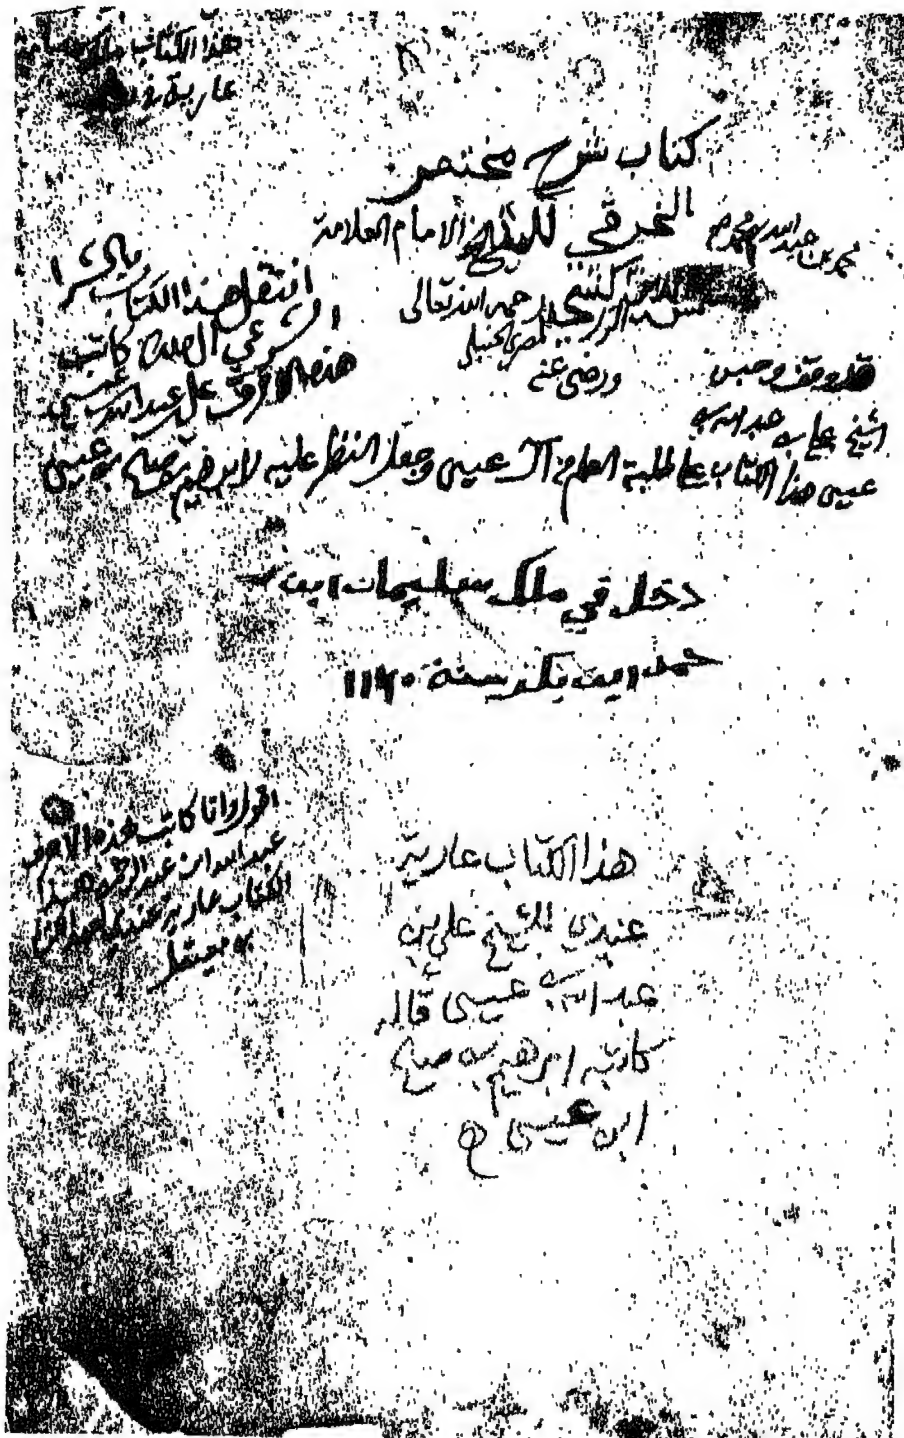 هذا الكتاب ملك
عارية
كتاب شرح مختصر
الخرقي للشيخ الامام العلامة
محمد بن عبد الله بن محمد
الزركشي رحمه الله تعالى
المصري الحنبلي
ورضي عنه
انتقل هذا الكتاب بالشرا
الشرعي الى ملك كاتب
هذه الاحرف علي بن عبد الله بن عيسى
قد وقف وحبس
الشيخ علي بن عبد الله بن
عيسى هذا الكتاب على طلبة العلم من آل عيسى وجعل النظر عليه لابرهيم بن صالح بن عيسى
دخل في ملك سليمان ابن
حمد ابن سنة ١١٢٠
اقول وانا كاتب هذه الاحرف
عبد الله ابن عبد الرحمن هذا
الكتاب عارية عندي
هذا الكتاب عارية
عندي للشيخ علي بن
عبد الله بن عيسى قاله
كاتبه ابرهيم بن صالح
ابن عيسى